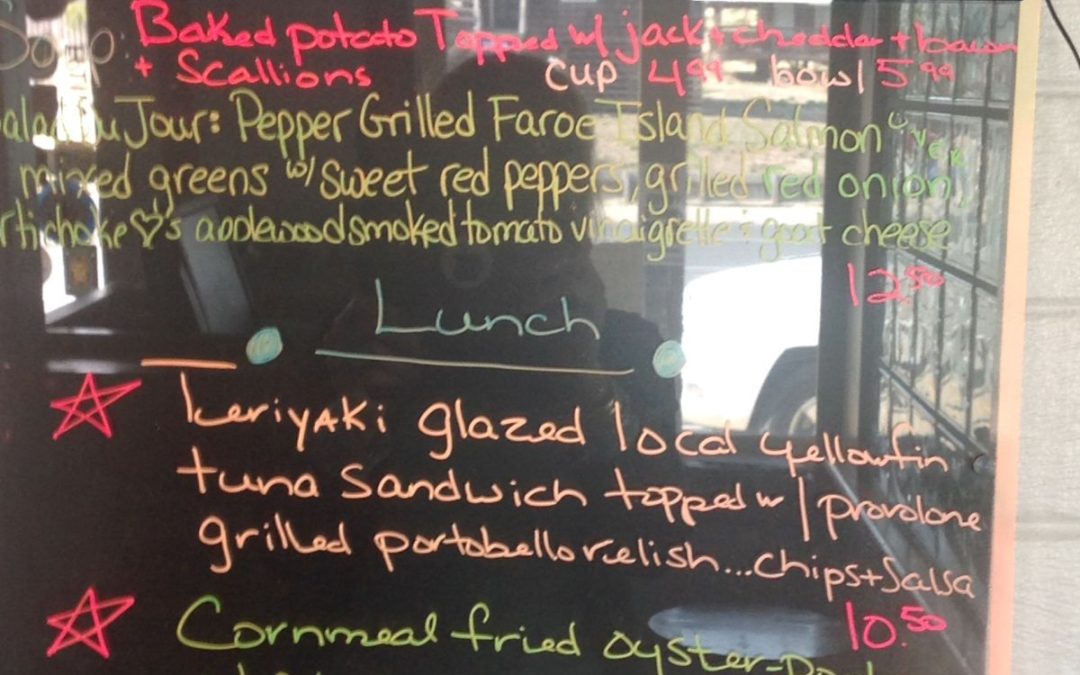 Soup: Baked potato Topped w/ jack + cheddar + bacon
+ Scallions cup 4.99 bowl 5.99
alad Du Jour: Pepper Grilled Faroe Island Salmon over
mixed greens w/ sweet red peppers, grilled red onion,
rtichoke ♡'s applewood smoked tomato vinaigrette & goat cheese
12.50
Lunch
Teriyaki glazed local yellowfin
tuna Sandwich topped w/ provolone
grilled portobello relish...chips + Salsa
10.50
Cornmeal fried oyster-